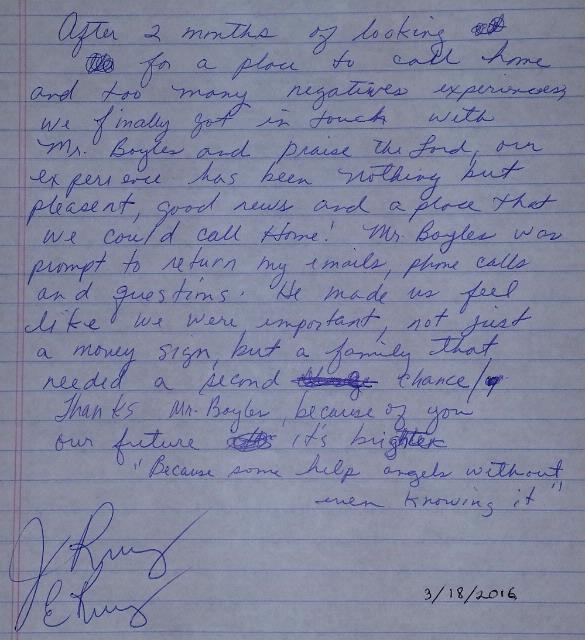 After 2 months of looking
for a place to call home
and too many negatives experiences,
we finally got in touch with
Mr. Boyles and praise the Lord, our
experience has been nothing but
pleasent, good news and a place that
we could call Home! Mr. Boyles was
prompt to return my emails, phone calls
and questions. He made us feel
like we were important, not just
a money sign, but a family that
needed a second chance/
Thanks Mr. Boyles, because of you
our future it's brighter
"Because some help angels without
even knowing it"
3/18/2016